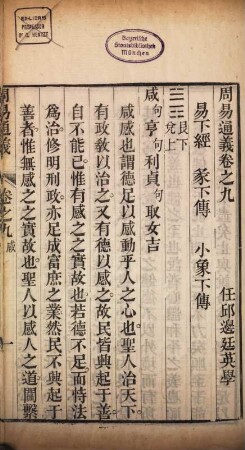 EX-LIBRIS
PROFESSOR
HENTZE
Bayerische
Staatsbibliothek
München
周易通義卷之九 任邱邊廷英學
易下經 彖下傳 小象下傳
䷞ 艮下兌上
咸句亨句利貞句取女吉
咸感也謂德足以感動乎人之心也聖人治天下
有政敎以治之又有德以感之故民皆興起于善
自不能已惟有感之之實故也若德不足而恃法
爲治修明刑政亦足成富庶之業然民不興起于
善者惟無感之之實故也聖人以感人之道關繫
周易通義 卷之九 咸